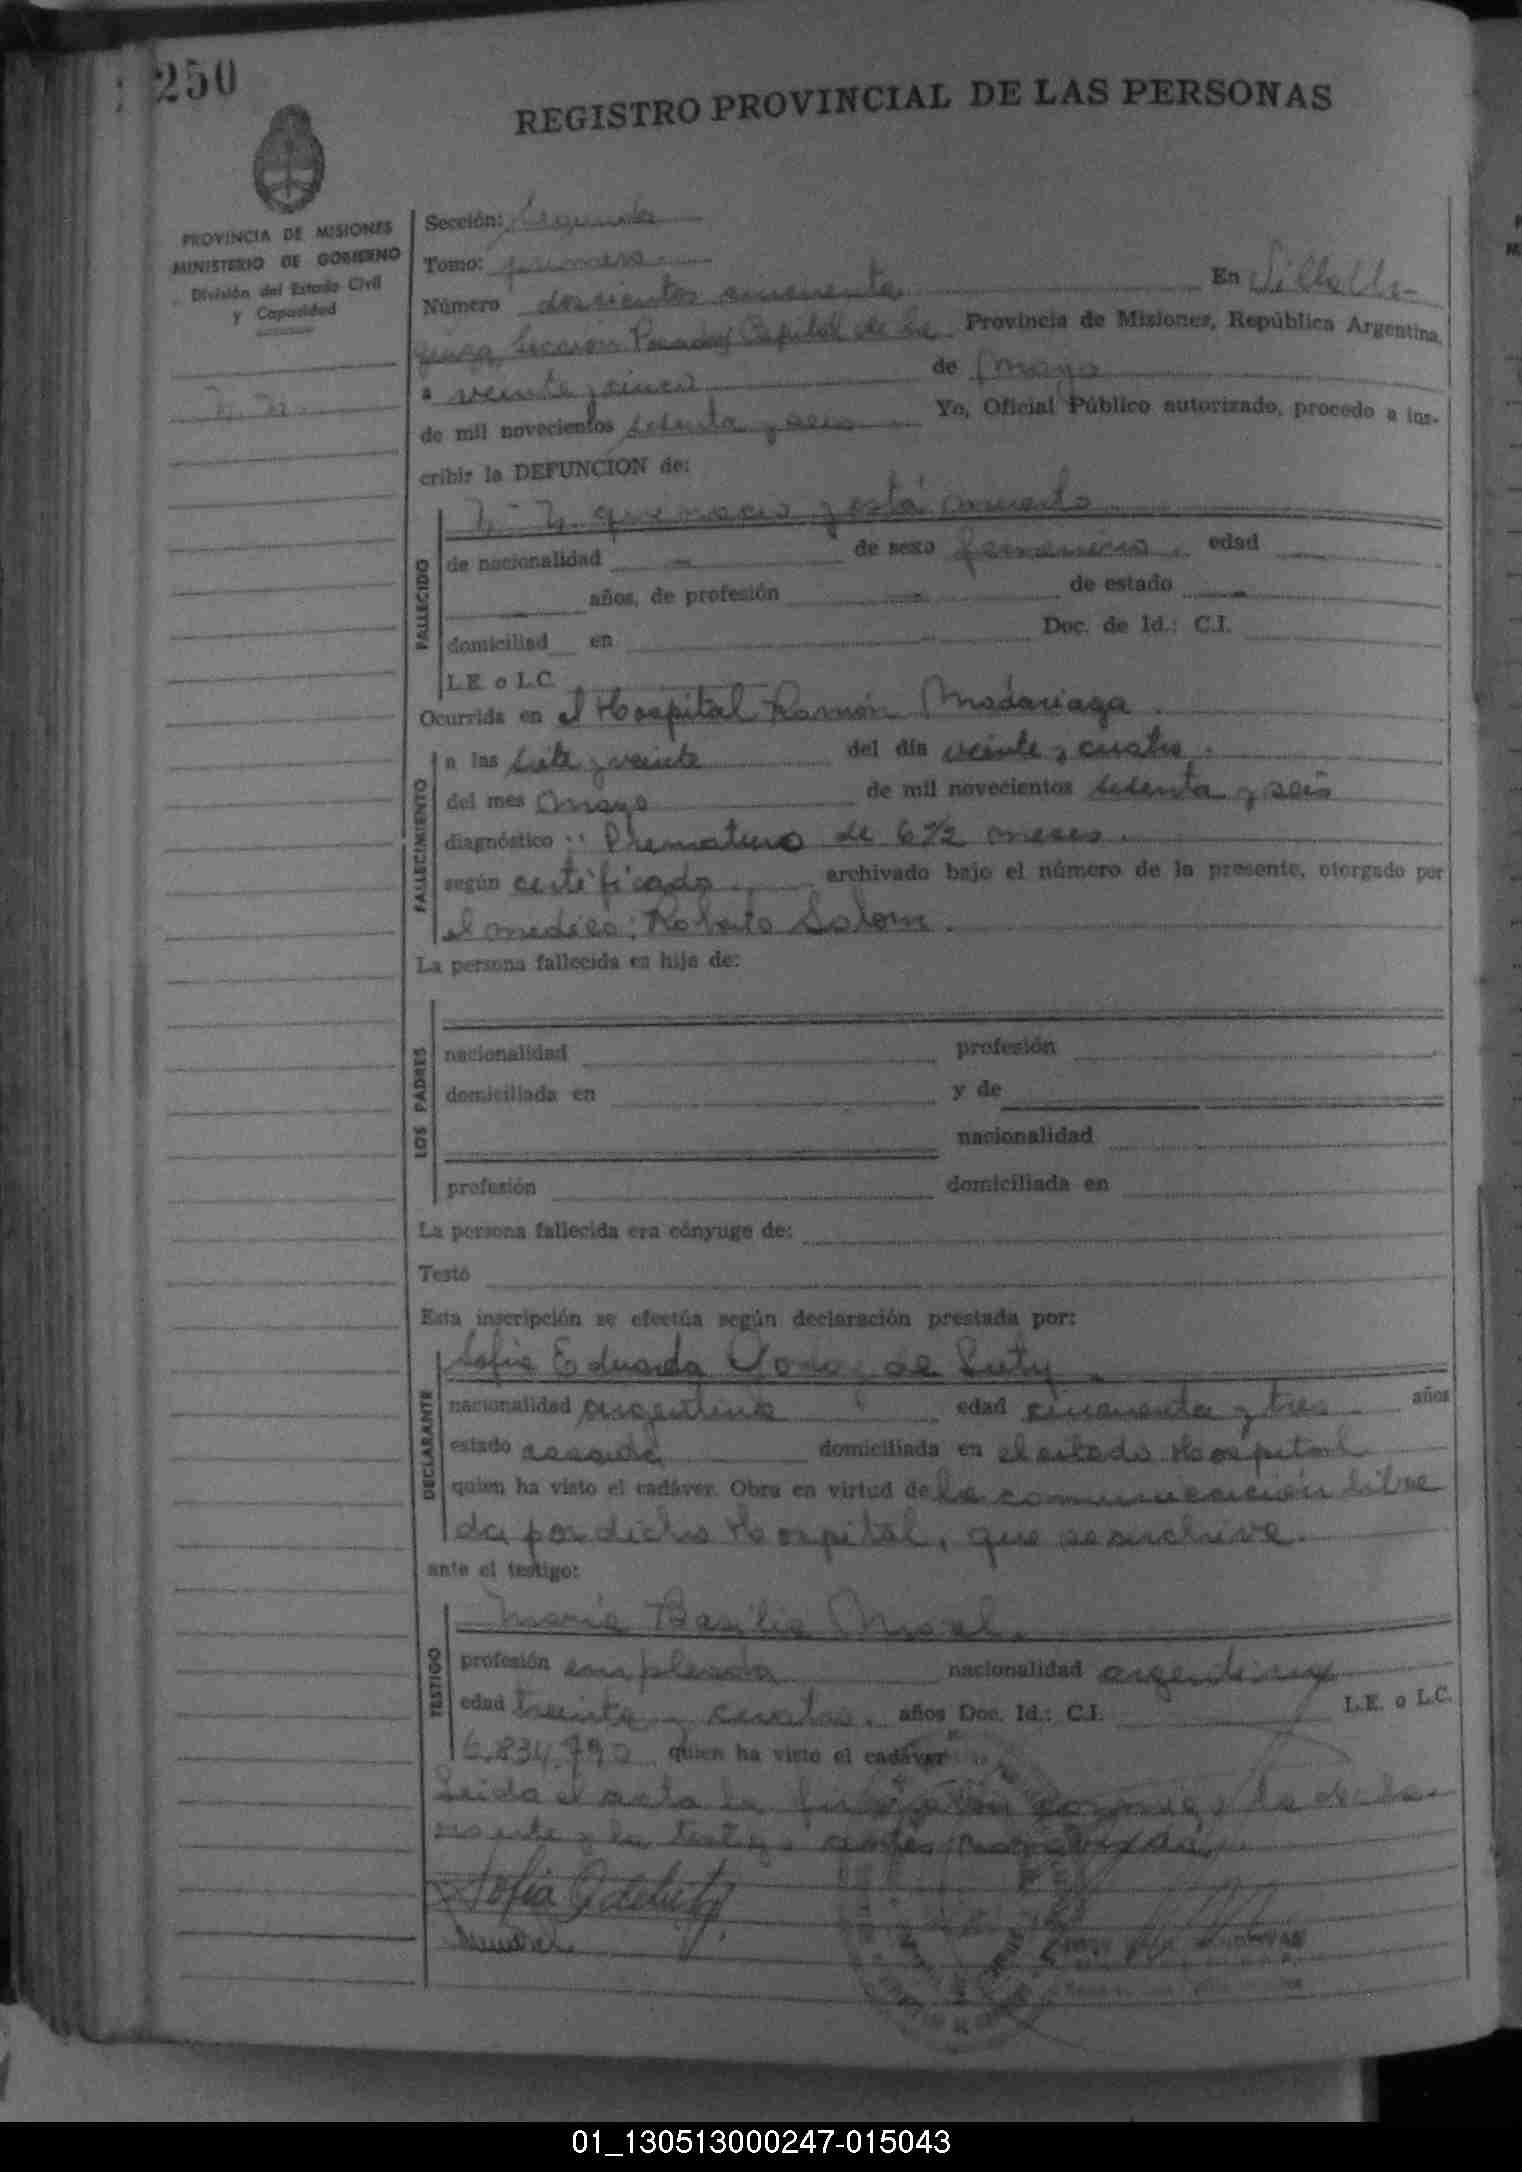 250
REGISTRO PROVINCIAL DE LAS PERSONAS
PROVINCIA DE MISIONES
MINISTERIO DE GOBIERNO
División del Estado Civil
y Capacidad
N. N.
Sección: Segunda
Tomo: primero
Número doscientos cincuenta En Villa Ur-
quiza, Sección Posadas Capital de la Provincia de Misiones, República Argentina,
a veinte y cinco de mayo
de mil novecientos setenta y seis Yo, Oficial Público autorizado, procedo a ins-
cribir la DEFUNCION de:
FALLECIDO
N. N. que nació y está muerto
de nacionalidad — de sexo femenino. edad
— años, de profesión — de estado —
domiciliad en Doc. de Id.: C.I.
L.E. o L.C.
Ocurrida en el Hospital Ramón Madariaga.
FALLECIMIENTO
a las siete y veinte del día veinte y cuatro.
del mes mayo de mil novecientos setenta y seis
diagnóstico: Prematuro de 6 1/2 meses.
según certificado archivado bajo el número de la presente, otorgado por
el médico: Roberto Salom.
La persona fallecida es hija de:
LOS PADRES
nacionalidad profesión
domiciliada en y de
nacionalidad
profesión domiciliada en
La persona fallecida era cónyuge de:
Testó
Esta inscripción se efectúa según declaración prestada por:
DECLARANTE
Sofía Eduarda de
nacionalidad argentina edad cincuenta y tres años
estado casada domiciliada en el citado Hospital
quien ha visto el cadáver. Obra en virtud de la comunicación libra
da por dicho Hospital, que se archiva.
ante el testigo:
TESTIGO
María Basilia
profesión empleada nacionalidad argentina
edad treinta y cuatro. años Doc. Id.: C.I. L.E. o L.C.
6.834.790 quien ha visto el cadáver
Leida el acta la firman conmigo, la decla-
rante y la testigo
Sofia
01_130513000247-015043